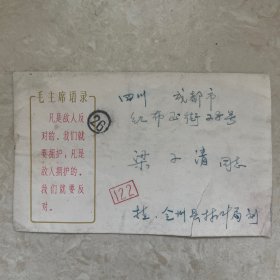 毛主席语录
凡是敌人反
对的，我们就
要拥护；凡是
敌人拥护的，
我们就要反
对。
26
四川 成都市
红布正街23号
梁子清同志
122
桂·全州县林业局